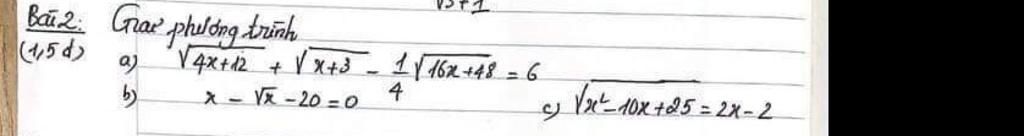 √3+1
Bài 2: Giải phương trình
(1,5 đ) a) √4x+12 + √x+3 - 1/4 √16x+48 = 6
b) x - √x - 20 = 0 c) √x²-10x+25 = 2x-2